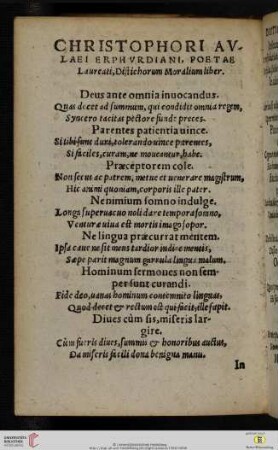 CHRISTOPHORI AV-
LAEI ERPHVRDIANI, POETAE
Laureati, Distichorum Moralium liber.
Deus ante omnia inuocandus.
Quas decet ad summum, qui condidit omnia regem,
Syncero tacitas pectore funde preces.
Parentes patientia uince.
Si tibi sunt duri, tolerando uince parentes,
Si faciles, curam, ne moueantur, habe.
Præceptorem cole.
Non secus ac patrem, metue et uenerare magistrum,
Hic animi quoniam, corporis ille pater.
Ne nimium somno indulge.
Longa superuacuo noli dare tempora somno,
Venturæ uiua est mortis imago sopor.
Ne lingua præcurrat mentem.
Ipsa caue ne sit mens tardior indice mentis,
Sæpe parit magnum garrula lingua malum.
Hominum sermones non sem-
per sunt curandi.
Fide deo, uanas hominum contemnito linguas,
Quod decet & rectum est qui facit, ille sapit.
Diues cùm sis, miseris lar-
gire.
Cùm fueris diues, summis & honoribus auctus,
Da miseris facili dona benigna manu.
In